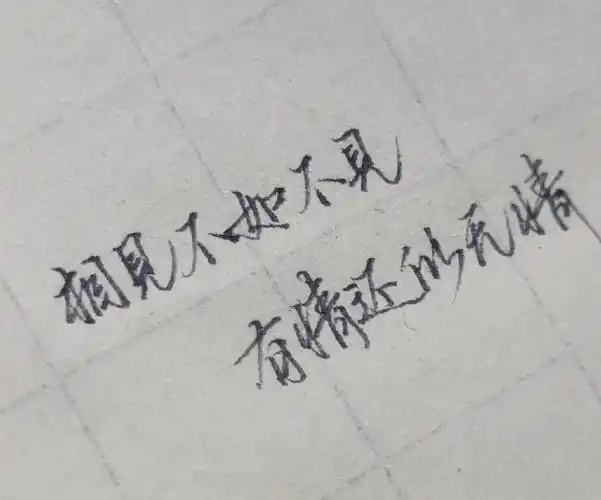 相見不如不見
有情还似无情